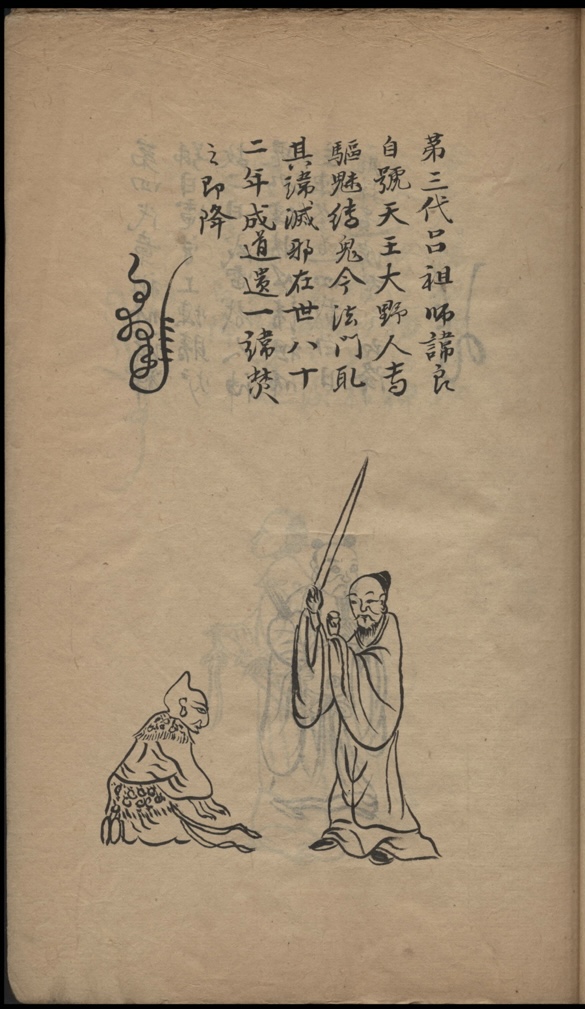 第三代吕祖师諱良
自號天王大野人專
驅魅縛鬼今法門取
其諱滅邪在世八十
二年成道遺一諱焚
之即降